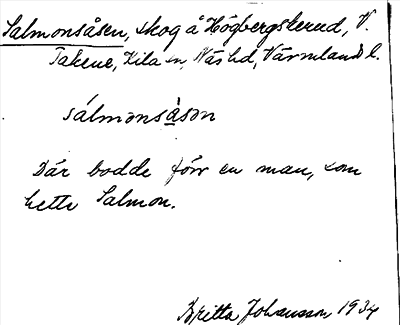 Salmonsåsen, skog å Högbergskerud, V.
Takene, Kila sn, Näs hd, Värmlands l.
sálmònså̀sòn
Där bodde förr en man, som
hette Salmon.
Britta Johansson 1934